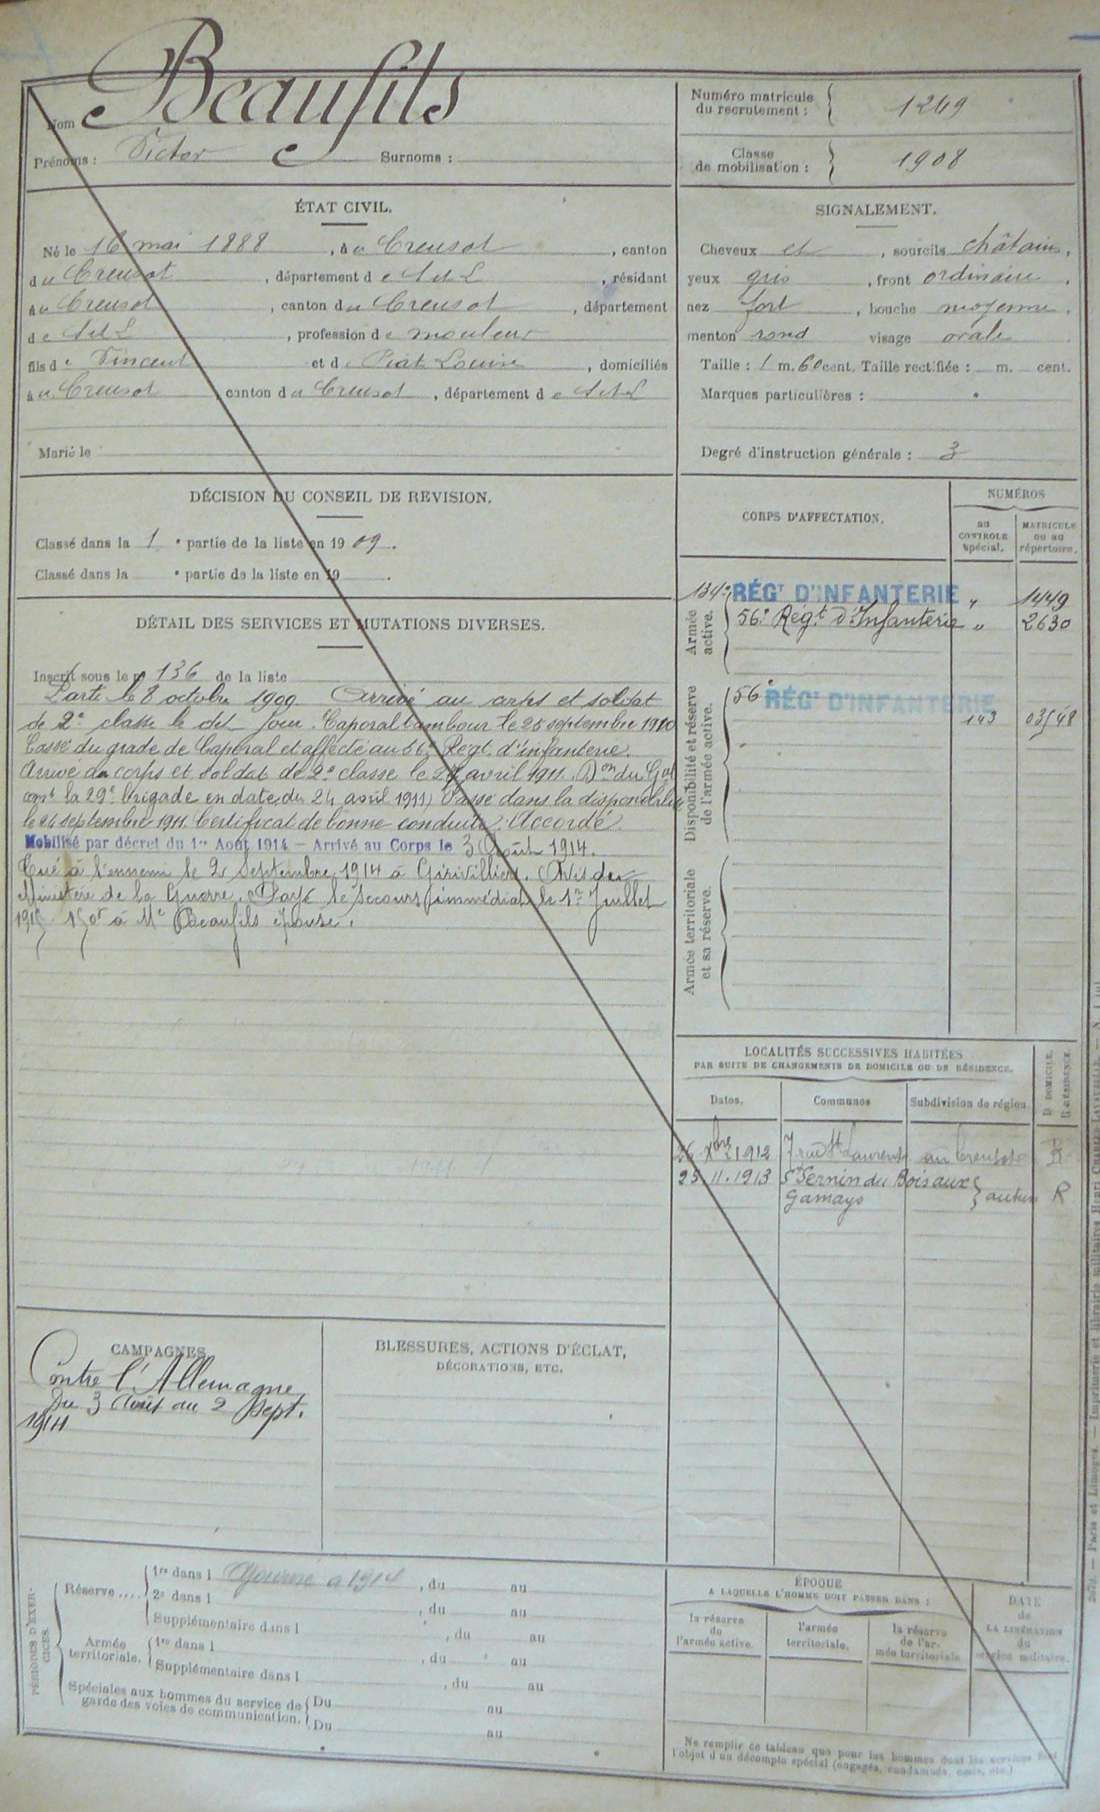 Nom Beaufils
Prénoms : Victor Surnoms :
Numéro matricule du recrutement : 1249
Classe de mobilisation : 1908
ÉTAT CIVIL.
Né le 16 mai 1888, à u Creusot, canton
du Creusot, département de S et L, résidant
à u Creusot, canton du Creusot, département
de S et L, profession de mouleur
fils de Vincent et de Piat Louise, domiciliés
à u Creusot canton du Creusot, département de S et L
Marié le
SIGNALEMENT.
Cheveux et, sourcils châtains,
yeux gris, front ordinaire,
nez fort, bouche moyenne,
menton rond visage ovale
Taille : 1 m. 60 cent. Taille rectifiée : m. cent.
Marques particulières :
Degré d'instruction générale : 3
DÉCISION DU CONSEIL DE REVISION.
Classé dans la 1e partie de la liste en 1909.
Classé dans la e partie de la liste en 19 .
DÉTAIL DES SERVICES ET MUTATIONS DIVERSES.
Inscrit sous le n 136 de la liste
Parti le 8 octobre 1909. Arrivé au corps et soldat
de 2e classe le dit jour. Caporal tambour le 25 septembre 1910
Cassé du grade de Caporal et affecté au 56e Régt d'infanterie.
Arrivé au corps et soldat de 2e classe le 27 avril 1911. Don du Gal
comt la 29e brigade en date du 24 avril 1911) Passé dans la disponibilité
le 24 septembre 1911. Certificat de bonne conduite : "Accordé".
Mobilisé par décret du 1er Août 1914 – Arrivé au Corps le 3 Août 1914.
Tué à l'ennemi le 2 Septembre 1914 à Gérivilliers. Avis du
Ministère de la Guerre. Payé le secours immédiat le 1er Juillet
1915 150f à Me Beaufils épouse.
CORPS D'AFFECTATION.
NUMÉROS
au CONTROLE spécial.
MATRICULE ou au répertoire.
Armée active.
134e RÉGT D'INFANTERIE " 1449
56e Régt d'Infanterie " 2630
Disponibilité et réserve de l'armée active.
56e RÉGT D'INFANTERIE
143 03548
Armée territoriale et sa réserve.
LOCALITÉS SUCCESSIVES HABITÉES
PAR SUITE DE CHANGEMENTS DE DOMICILE OU DE RÉSIDENCE.
Dates. Communes Subdivision de région.
D. DOMICILE. R. RÉSIDENCE.
26 Xbre 1912 7 rue St Laurent au Creusot R
25.11.1913 St Sernin du Bois aux
Gamays autun R
CAMPAGNES
Contre l'Allemagne
Du 3 Août au 2 Sept.
1914
BLESSURES, ACTIONS D'ÉCLAT,
DÉCORATIONS, ETC.
PÉRIODES D'EXERCICES.
Réserve.... 1re dans l Ajourné a 1914, du au
2e dans l , du au
Supplémentaire dans l , du au
Armée territoriale. 1re dans l , du au
Supplémentaire dans l , du au
Spéciales aux hommes du service de Du au
garde des voies de communication. Du au
ÉPOQUE
A LAQUELLE L'HOMME DOIT PASSER DANS :
la réserve de l'armée active.
l'armée territoriale.
la réserve de l'armée territoriale.
DATE de LA LIBÉRATION du service militaire.
Ne remplir ce tableau que pour les hommes dont les services font
l'objet d'un décompte spécial (engagés, condamnés, omis, etc.)